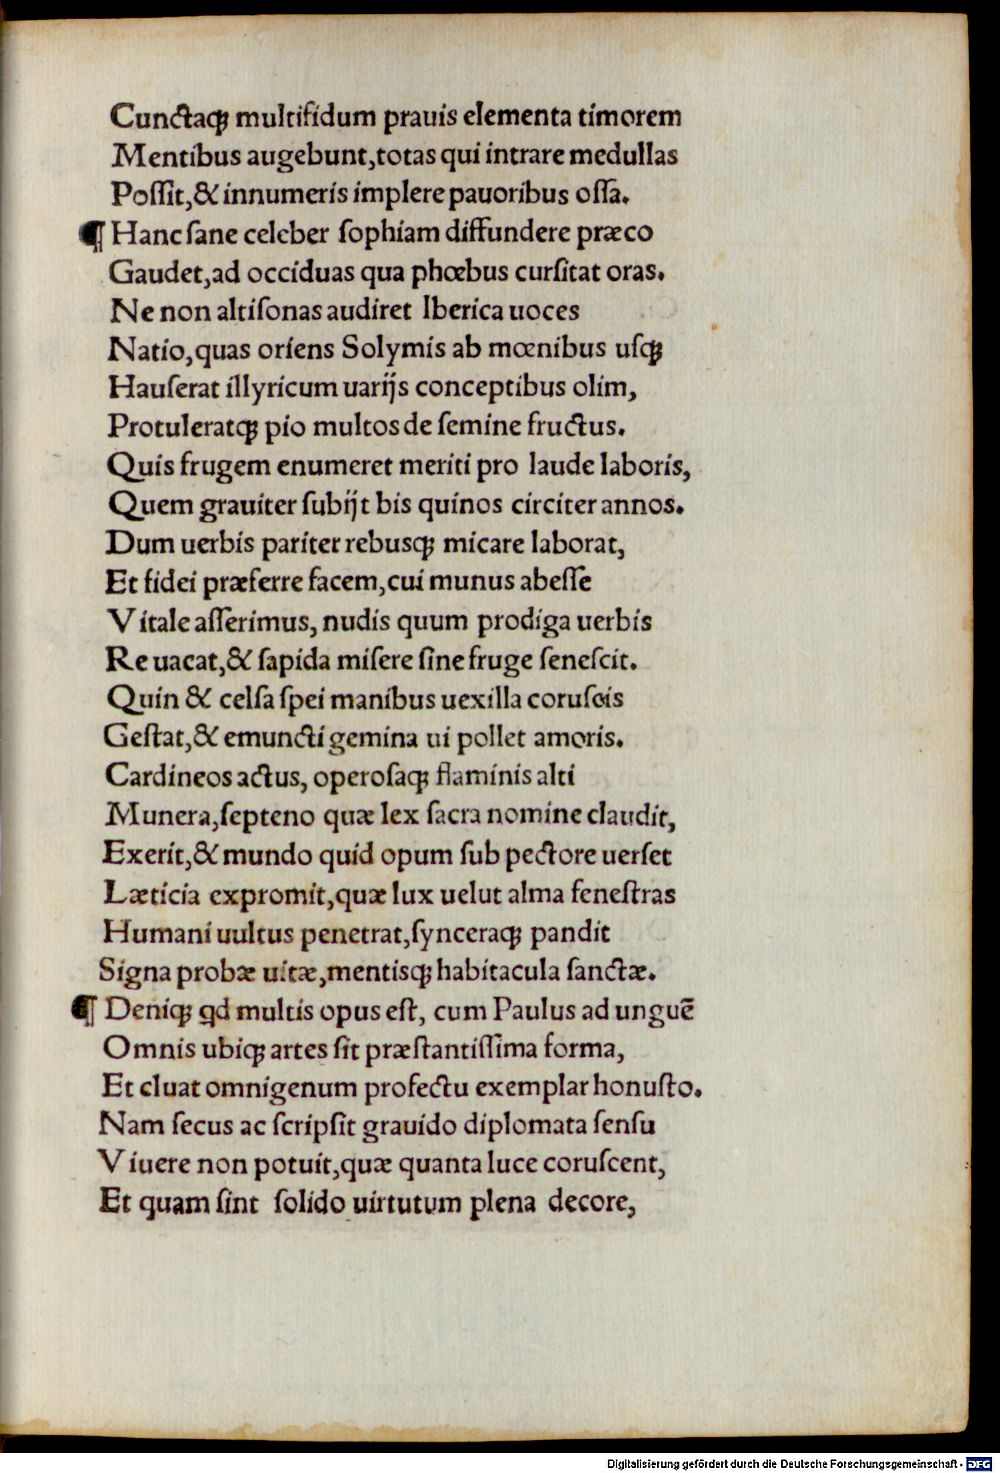 Cunctaqꝫ multifidum prauis elementa timorem
Mentibus augebunt,totas qui intrare medullas
Poſſit,& innumeris implere pauoribus oſſa.
¶ Hanc ſane celeber ſophiam diffundere præco
Gaudet,ad occiduas qua phœbus curſitat oras.
Ne non altiſonas audiret Iberica uoces
Natio,quas oriens Solymis ab mœnibus uſqꝫ
Hauſerat illyricum uarijs conceptibus olim,
Protuleratqꝫ pio multos de ſemine fructus.
Quis frugem enumeret meriti pro laude laboris,
Quem grauiter ſubijt bis quinos circiter annos.
Dum uerbis pariter rebusqꝫ micare laborat,
Et fidei præferre facem,cui munus abeſſe
Vitale aſſerimus, nudis quum prodiga uerbis
Re uacat,& ſapida miſere ſine fruge ſeneſcit.
Quin & celſa ſpei manibus uexilla coruſcis
Geſtat,& emuncti gemina ui pollet amoris.
Cardineos actus, operoſaqꝫ flaminis alti
Munera,ſepteno quæ lex ſacra nomine claudit,
Exerit,& mundo quid opum ſub pectore uerſet
Læticia expromit,quæ lux uelut alma feneſtras
Humani uultus penetrat,ſynceraqꝫ pandit
Signa probæ uitæ,mentisqꝫ habitacula ſanctæ.
¶ Deniqꝫ qd multis opus eſt, cum Paulus ad unguē
Omnis ubiqꝫ artes ſit præſtantiſſima forma,
Et cluat omnigenum profectu exemplar honuſto.
Nam ſecus ac ſcripſit grauido diplomata ſenſu
Viuere non potuit,quæ quanta luce coruſcent,
Et quam ſint ſolido uirtutum plena decore,
Digitalisierung gefördert durch die Deutsche Forschungsgemeinschaft - DFG